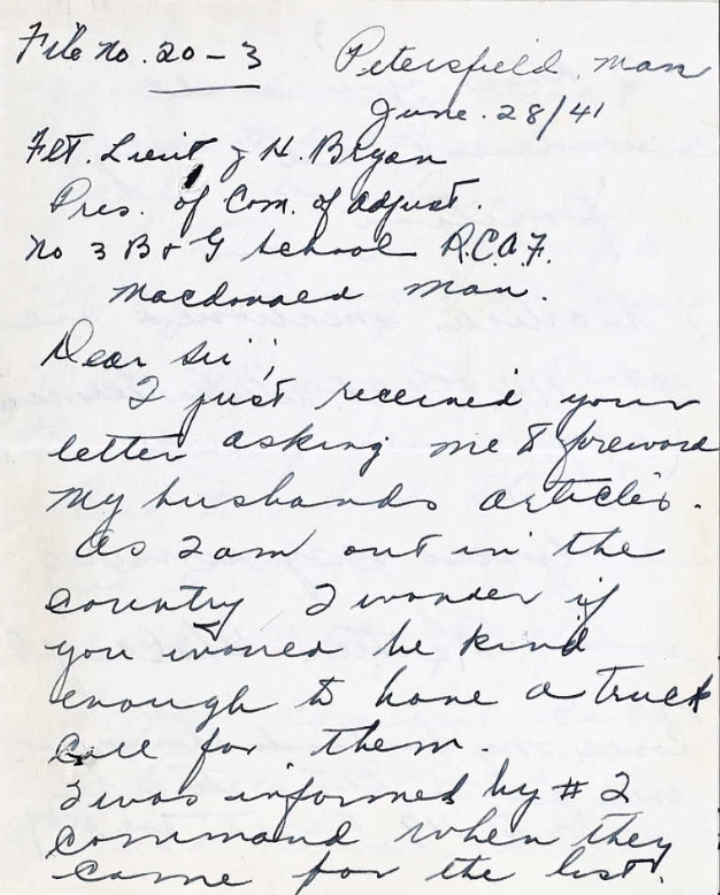 File no. 20-3
Petersfield, Man
June. 28/41
Flt. Lieut J H. Bryan
Pres. of Com. of adjust.
No 3 B & G School R.C.A.F.
Macdonald Man.
Dear Sir;
I just received your
letter asking me to foreword
my husbands articles.
As I am out in the
country I wonder if
you would be kind
enough to have a truck
call for them.
I was informed by # 2
command when they
came for the list.